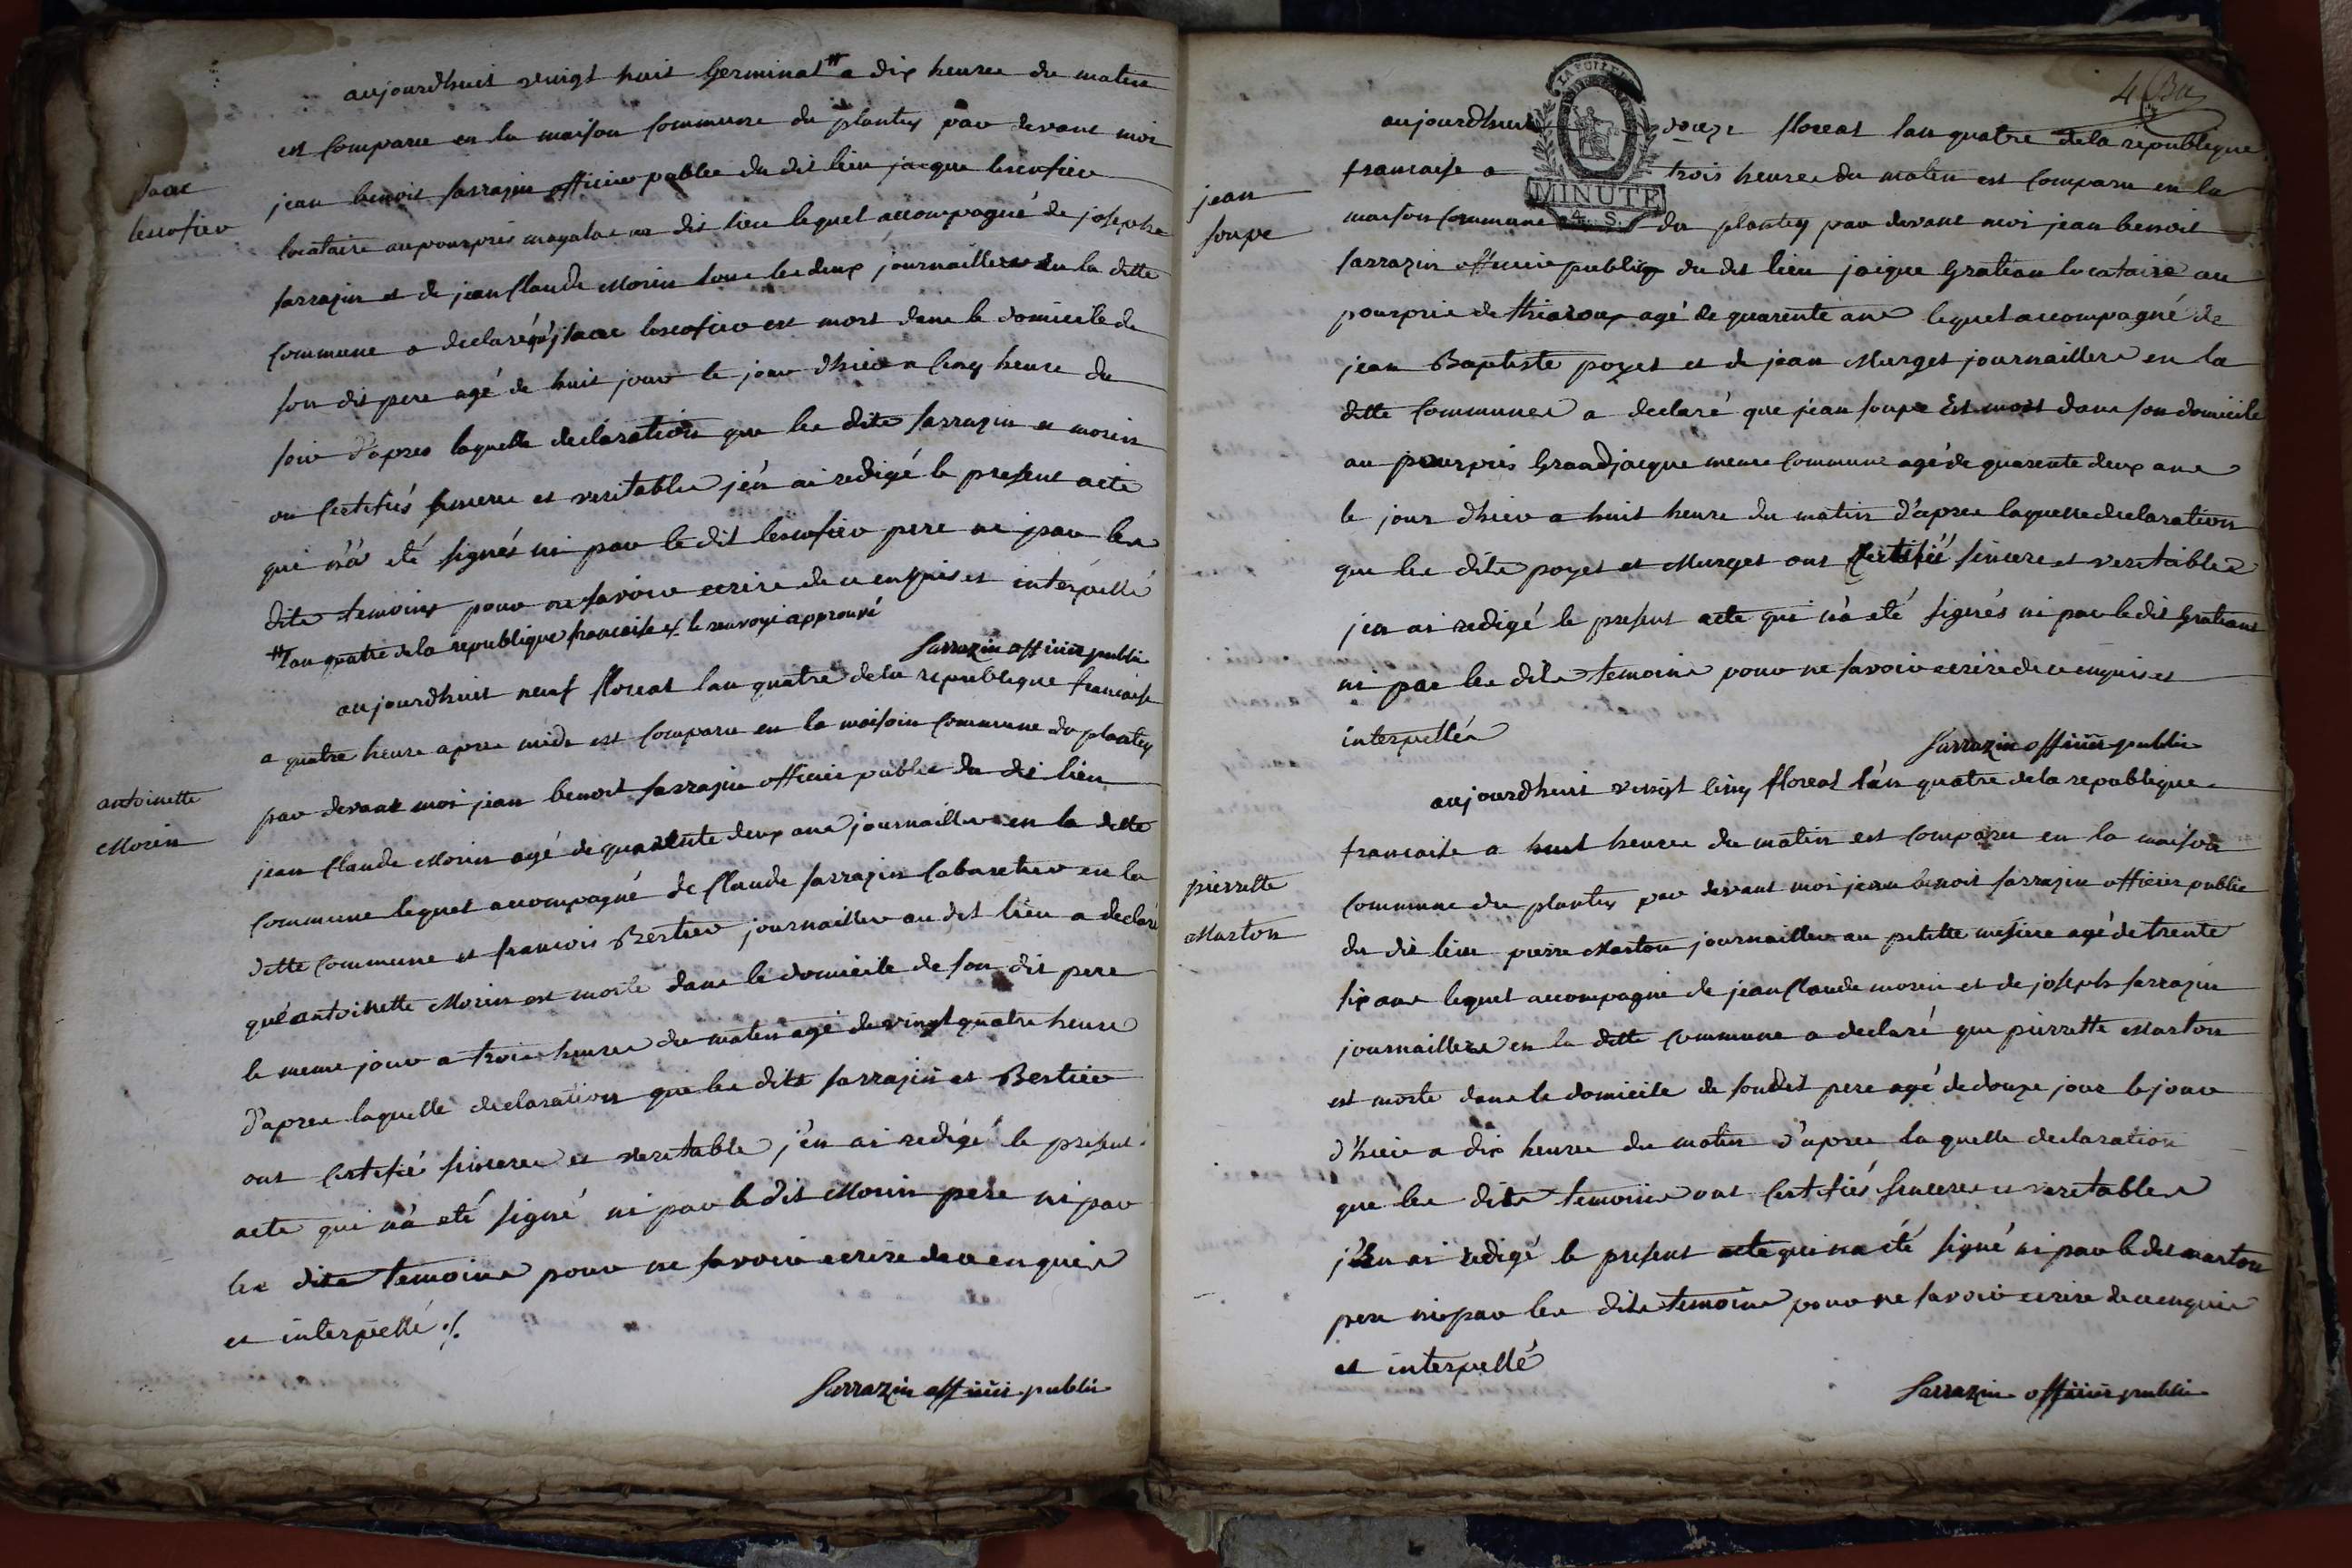 aujourdhuit vuingt huit Germinal # a dix heures du matin
est comparu en la maison commune du plantey par devant moi
jean benoit sarrazin officier publec du dit lieu jacque lescofier
isaac
lescofier
locataire au pourpris mayala du dit lieu lequel accompagné de josephe
sarrazin et de jean Claude Morin tous les deux journalliers en la ditte
commune a declaré qu'isaac lescofier est mort dans le domicile de
son dit pere agé de huit jour le jour d'hier a cinq heure du
soir d'apres laquelle declaration que les dits sarrazin et morin
on certifiés sincere et veritables j'en ai redigé le present acte
qui n'a eté signés ni par le dit lescofier pere ni par les
dits temoins pour ne savoir ecrire de ce enquis et interpellé
# l'an quatre de la republique francaise & le renvoye approuvé
Sarrazin officier public
aujourdhuit neuf floreal l'an quatre de la republique francaise
a quatre heure apres midi est comparu en la maison commune du plantey
par devant moi jean benoit sarrazin officier public du dit lieu
antoinette
Morin
jean Claude Morin agé de quarente deux ans journallier en la ditte
commune lequel accompagné de Claude sarrazin cabaretier en la
ditte commune et francois Bertier journallier au dit lieu a declaré
qu'antoinette Morin est morte dans le domicile de son dit pere
le meme jour a trois heures du matin agé de vingt quatre heure
d'apres laquelle declaration que les dits sarrazin et Bertier
ont certifié sinceres et veritable j'en ai redigé le present
acte qui n'a eté signé ni par le dit Morin pere ni par
les dits temoins pour ne savoir ecrire de ce enquis
et interpellé ./.
Sarrazin officier public
4
aujourdhuit douze floreal l'an quatre de la republique
LA FEUILLE
francaise a trois heures du matin est comparu en la
MINUTE
4. S.
jean
soupe
maison commune du plantey par devant moi jean benoit
sarrazin officier public du dit lieu jaique Gratian locataire au
pourpris de agé de quarente ans lequel accompagné de
jean Baptiste poyet et de jean Murget journalliers en la
ditte communes a declaré que jean soupe est mort dans son domicile
au pourpris Grandjacque meme commune agé de quarente deux ans
le jour d'hier a huit heure du matin d'apres laquelle declaration
que les dits poyet et Murget ont certifié sincere et veritables
j'en ai redigé le present acte qui n'a eté signés ni par le dit Gratian
ni par les dits temoins pour ne savoir ecrire de ce enquis et
interpellés
Sarrazin officier public
aujourdhuit vingt cinq floreal l'an quatre de la republique
francaise a huit heures du matin est comparu en la maison
pierrette
Marton
commune du plantey par devant moi jean benoit sarrazin officier public
du dit lieu pierre Marton journallier au petitte agé de trente
six ans lequel accompagné de jean Claude morin et de joseph sarrazin
journalliers en la ditte commune a declaré que pierrette Marton
est morte dans le domicile de son dit pere agé de douze jour le jour
d'hier a dix heures du matin d'apres la quelle declaration
que les dits temoins ont certifiés sinceres et veritables
j'en ai redigé le present acte qui n'a eté signé ni par le dit marton
pere ni par les dits temoins pour ne savoir ecrire de ce enquis
et interpellé
Sarrazin officier public